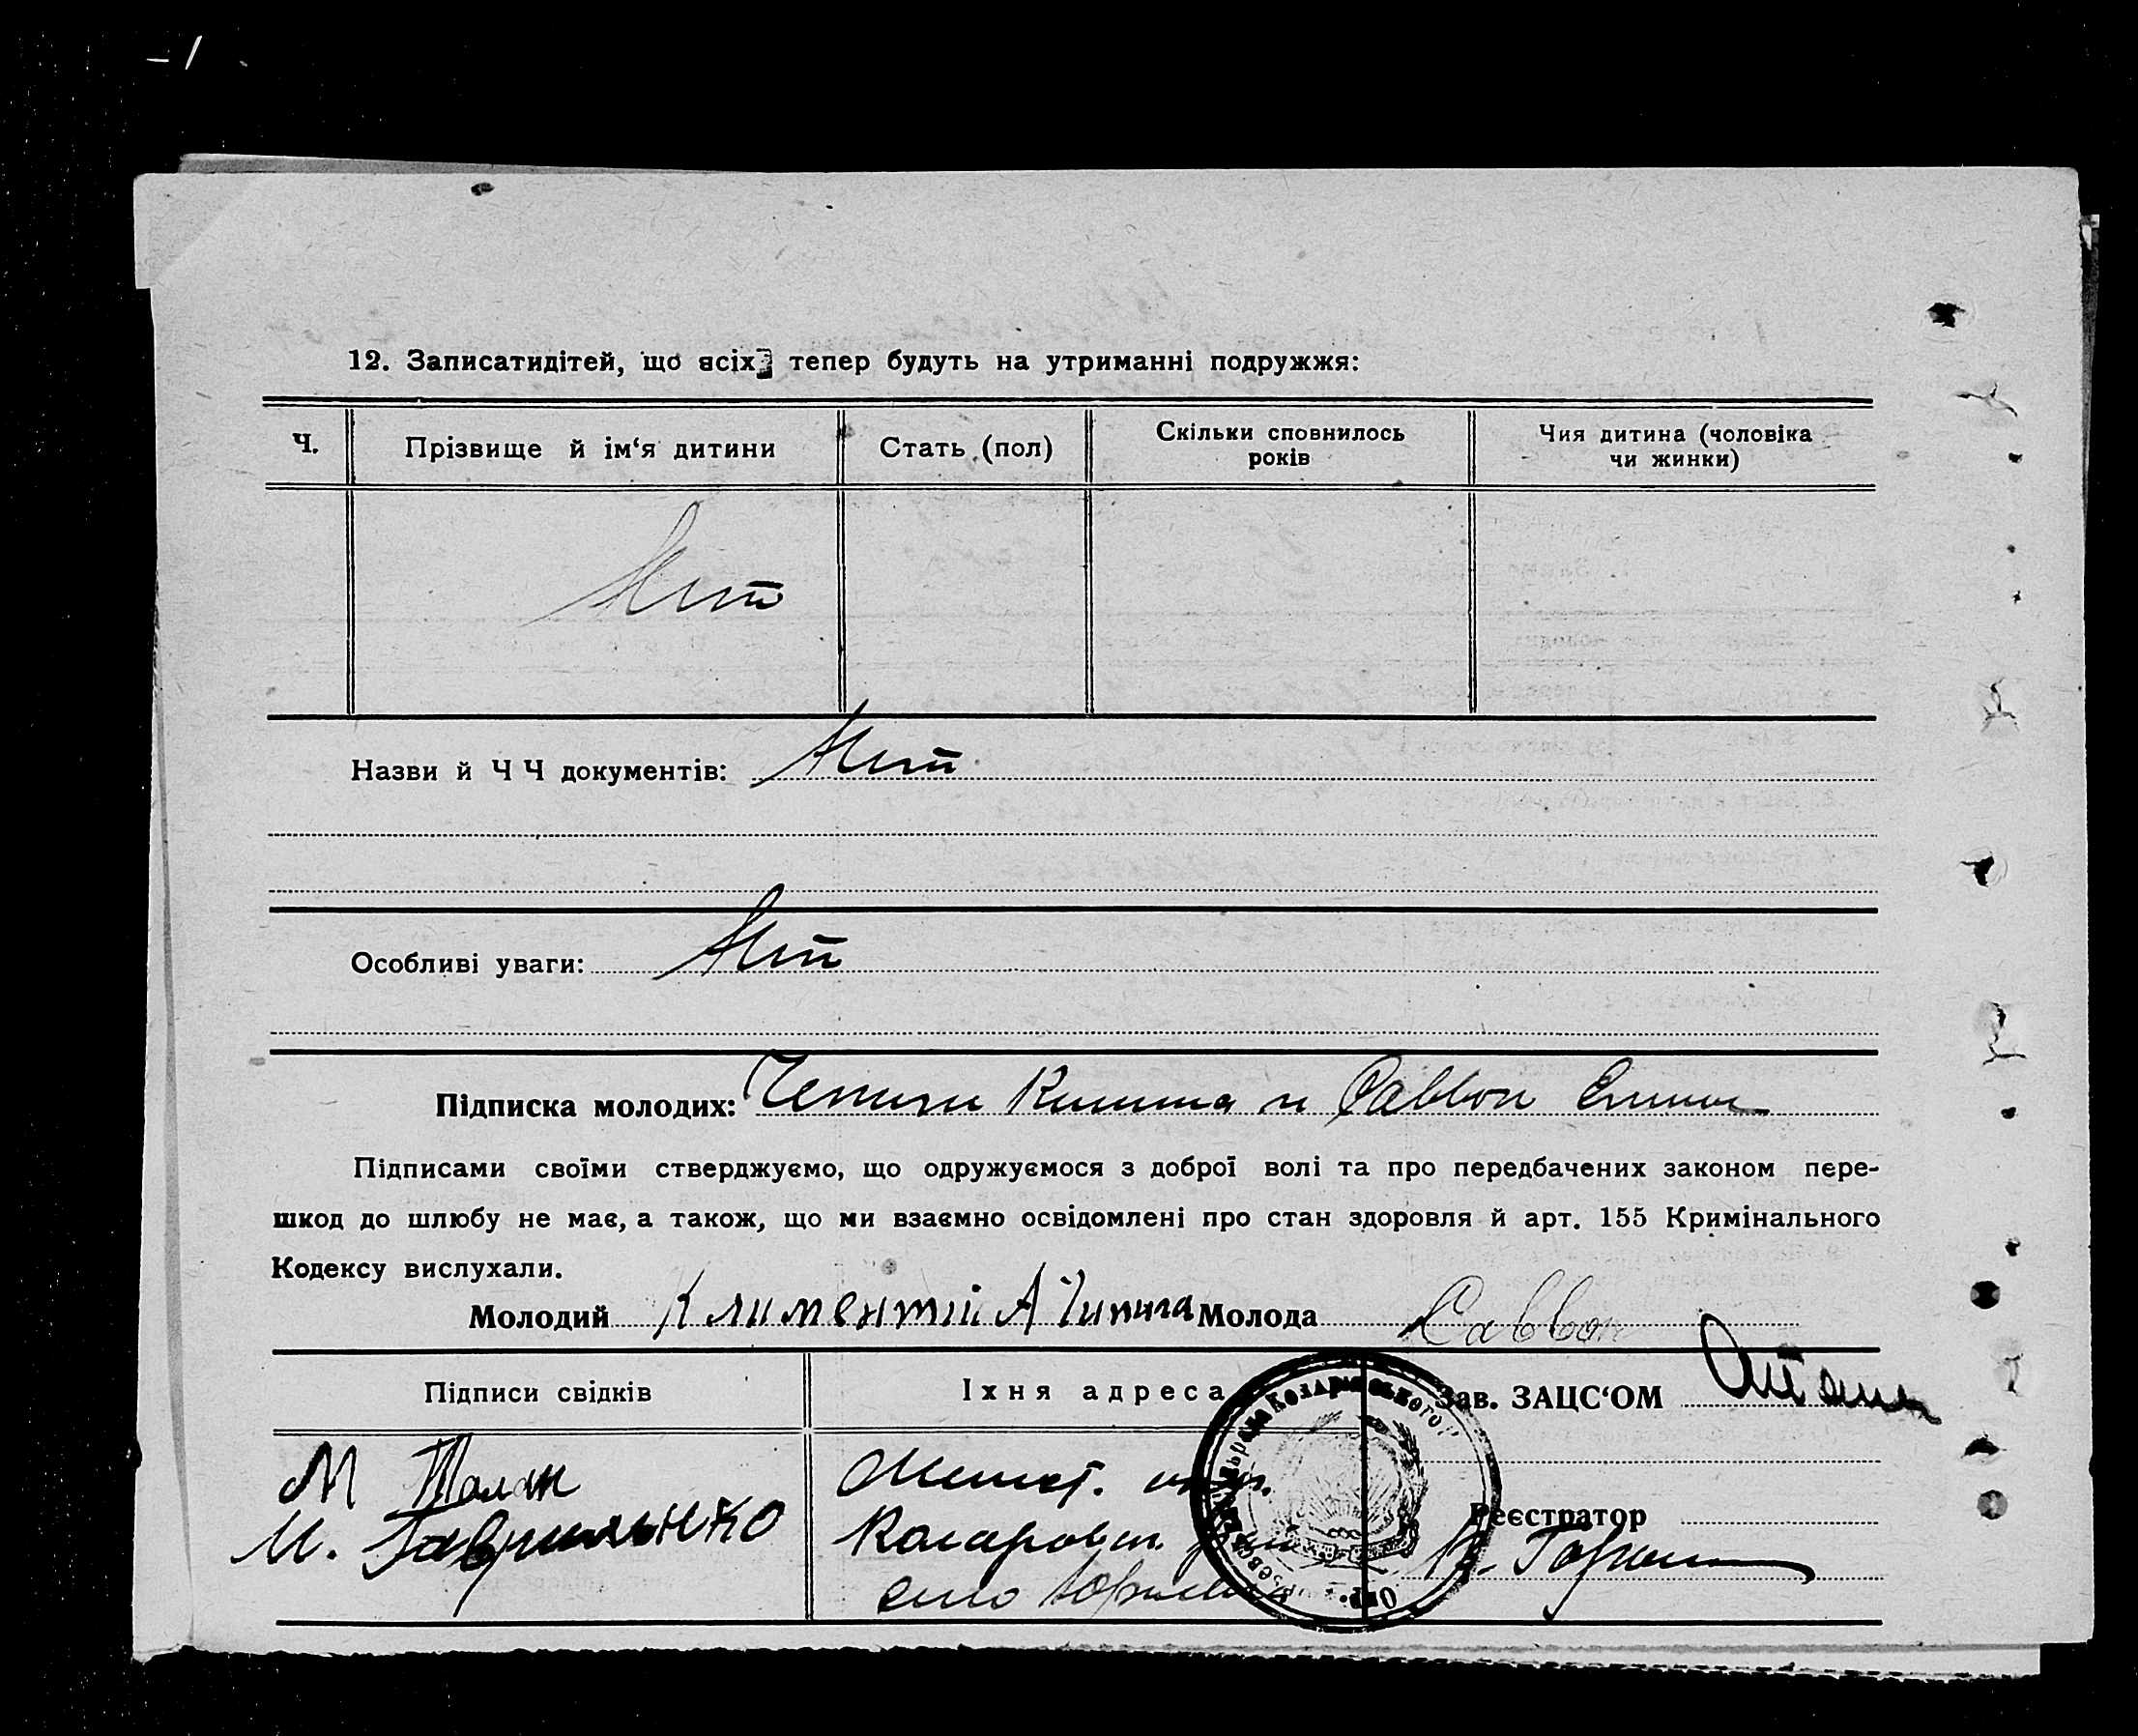 12. Записатидітей, що всіх тепер будуть на утриманні подружжя:
Ч. Прізвище й ім‘я дитини Стать (пол) Скільки сповнилось років Чия дитина (чоловіка чи жинки)
Нет
Назви й Ч Ч документів: Нет
Особливі уваги: Нет
Підписка молодих: и Саввон
Підписами своїми стверджуємо, що одружуємося з доброї волі та про передбачених законом пере-
шкод до шлюбу не має, а також, що ми взаємно освідомлені про стан здоровля й арт. 155 Кримінального
Кодексу вислухали.
Молодий Климентий А Чипига Молода Саввон
Підписи свідків Їхня адреса Зав. ЗАЦС‘ОМ
М
И. Гавриленко
село
Реєстратор